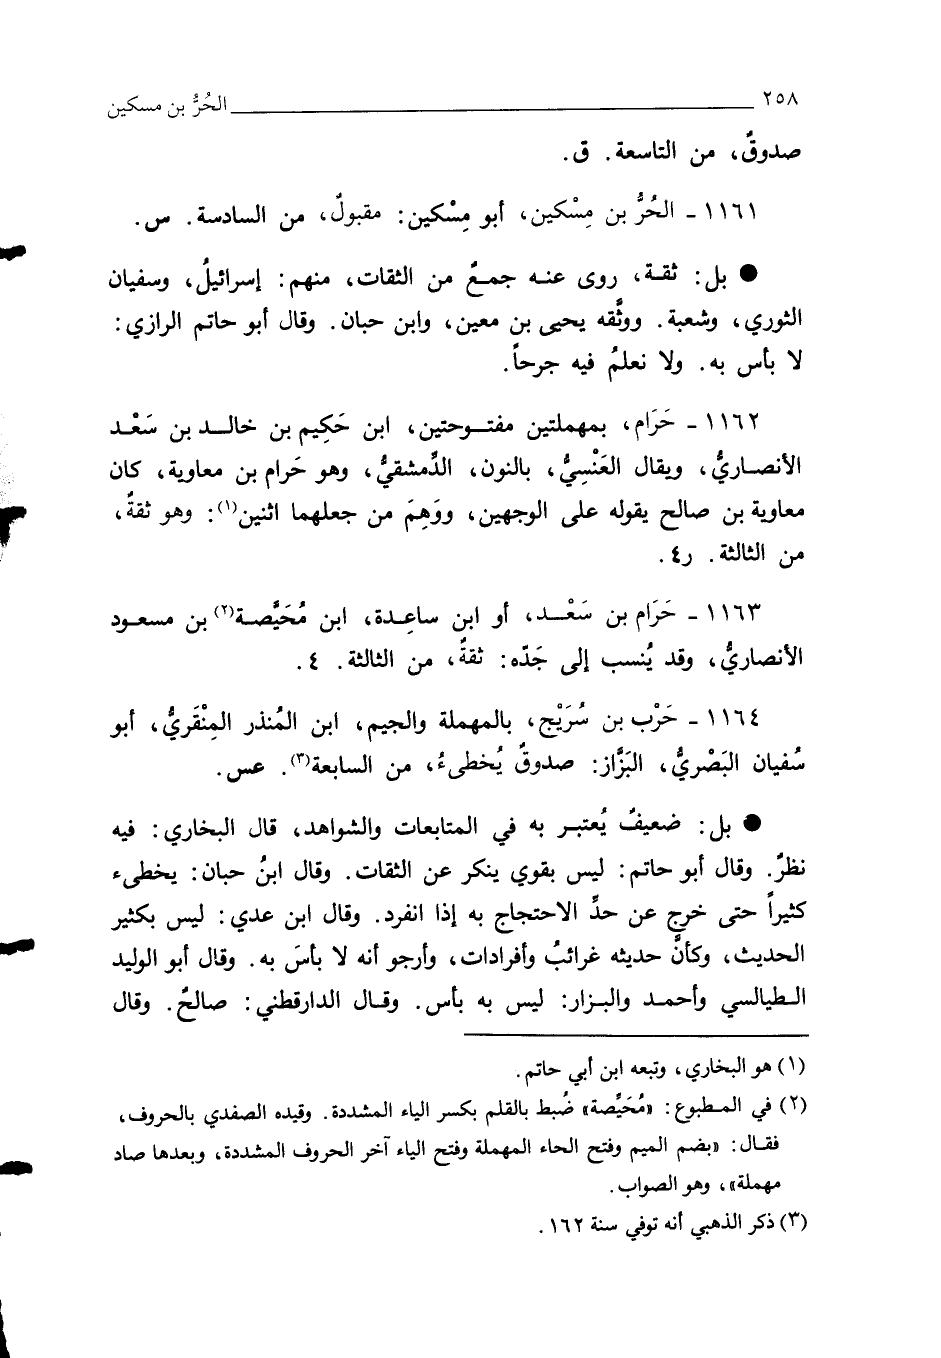 ٢٥٨ الحُرُّ بن مسكين
صدوقٌ، من التاسعة. ق.
١١٦١ - الحُرُّ بن مِسْكين، أبو مِسْكين: مقبولٌ، من السادسة. س.
● بل: ثقة، روى عنه جمعٌ من الثقات، منهم: إسرائيلُ، وسفيان
الثوري، وشعبة. ووثَّقه يحيى بن معين، وابن حبان. وقال أبو حاتم الرازي:
لا بأس به. ولا نعلمُ فيه جرحاً.
١١٦٢ - حَرَام، بمهملتين مفتوحتين، ابن حَكِيم بن خالد بن سَعْد
الأنصاريُّ، ويقال العَنْسِيُّ، بالنون، الدِّمشقيُّ، وهو حَرام بن معاوية، كان
معاوية بن صالح يقوله على الوجهين، ووَهِمَ من جعلهما اثنين(١): وهو ثقةٌ،
من الثالثة. ر٤.
١١٦٣ - حَرَام بن سَعْد، أو ابن ساعِدة، ابن مُحَيَّصة(٢) بن مسعود
الأنصاريُّ، وقد يُنسب إلى جَدّه: ثقةٌ، من الثالثة. ٤.
١١٦٤ - حَرْب بن سُرَيْج، بالمهملة والجيم، ابن المُنذر المِنْقَريُّ، أبو
سُفيان البَصْريُّ، البَزَّاز: صدوقٌ يُخطىءُ، من السابعة(٣). عس.
● بل: ضعيفٌ يُعتبر به في المتابعات والشواهد، قال البخاري: فيه
نظرٌ. وقال أبو حاتم: ليس بقوي ينكر عن الثقات. وقال ابنُ حبان: يخطىء
كثيراً حتى خرج عن حدِّ الاحتجاج به إذا انفرد. وقال ابن عدي: ليس بكثير
الحديث، وكأنَّ حديثه غرائبُ وأفرادات، وأرجو أنه لا بأسَ به. وقال أبو الوليد
الطيالسي وأحمد والبزار: ليس به بأس. وقال الدارقطني: صالحٌ. وقال
(١) هو البخاري، وتبعه ابن أبي حاتم.
(٢) في المطبوع: «مُحَيِّصة» ضُبط بالقلم بكسر الياء المشددة. وقيده الصفدي بالحروف،
فقال: «بضم الميم وفتح الحاء المهملة وفتح الياء آخر الحروف المشددة، وبعدها صاد
مهملة»، وهو الصواب.
(٣) ذكر الذهبي أنه توفي سنة ١٦٢.